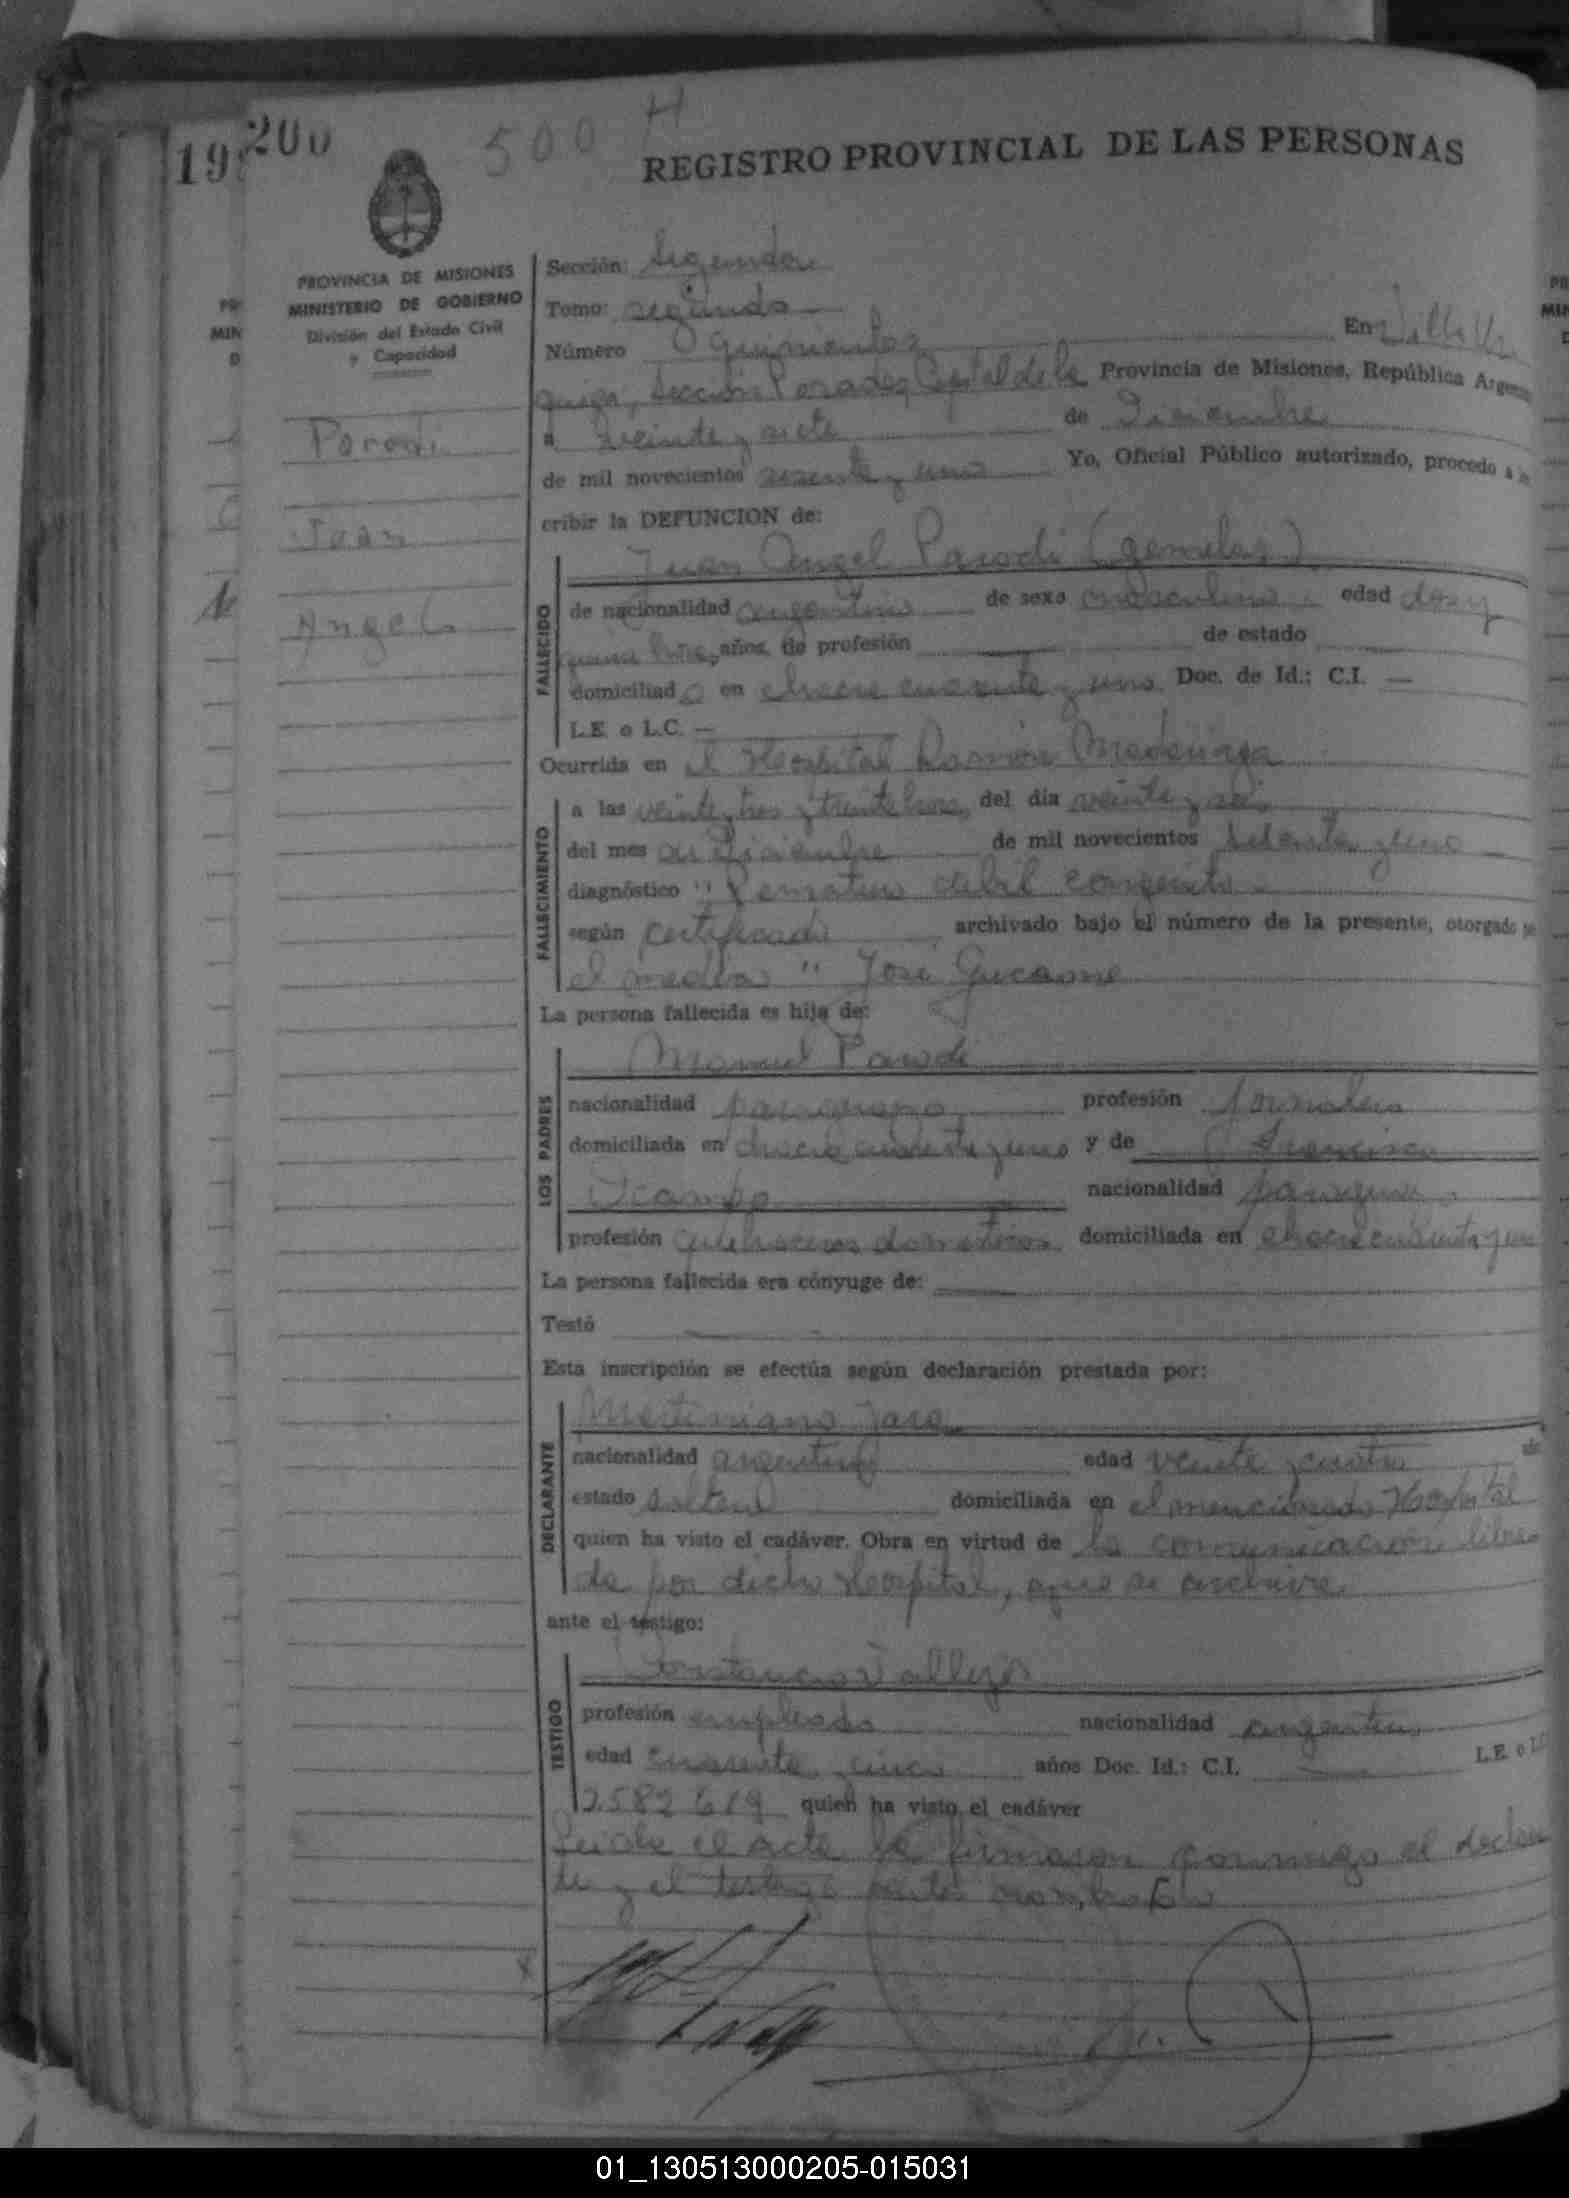 19 200 500 H
REGISTRO PROVINCIAL DE LAS PERSONAS
PROVINCIA DE MISIONES
MINISTERIO DE GOBIERNO
División del Estado Civil
y Capacidad
Parodi
Juan
Angel
Sección: Segunda
Tomo: segundo
Número quinientos En Villa Ur
quiza, Sección Posadas Capital de la Provincia de Misiones, República Argen
a veinte y siete de Diciembre
de mil novecientos y uno Yo, Oficial Público autorizado, procedo a ins
cribir la DEFUNCION de:
FALLECIDO
Juan Angel Parodi (gemelos)
de nacionalidad argentino de sexo masculino edad doz y
años, de profesión de estado
domiciliado en chacra cuarenta y uno Doc. de Id.: C.I. —
L.E. o L.C. —
Ocurrida en el Hospital Ramón Madariaga
FALLECIMIENTO
a las veinte y tres y treinta horas del día veinte y seis
del mes de Diciembre de mil novecientos setenta y uno
diagnóstico " Prematuro debil congenito
según certificado archivado bajo el número de la presente, otorgado por
el medico " Jose
La persona fallecida es hija de:
LOS PADRES
Manuel Parodi
nacionalidad paraguayo profesión jornalero
domiciliada en chacra cuarenta y uno y de Francisca
Ocampo nacionalidad paraguaya
profesión quehaceres domesticos domiciliada en chacra cuarenta y uno
La persona fallecida era cónyuge de:
Testó
Esta inscripción se efectúa según declaración prestada por:
DECLARANTE
Martiniano Jara
nacionalidad argentino edad veinte y cuatro
estado soltero domiciliada en el mencionado Hospital
quien ha visto el cadáver. Obra en virtud de la comunicación libra
da por dicho Hospital, que se archiva
ante el testigo:
TESTIGO
Constancio Vallejos
profesión empleado nacionalidad argentino
edad cuarenta y cinco años Doc. Id.: C.I. L.E. o L.C.
2582619 quien ha visto el cadáver
Leida el acta la firmaron conmigo el declaran
te y el testigo antes nombrado
01_130513000205-015031